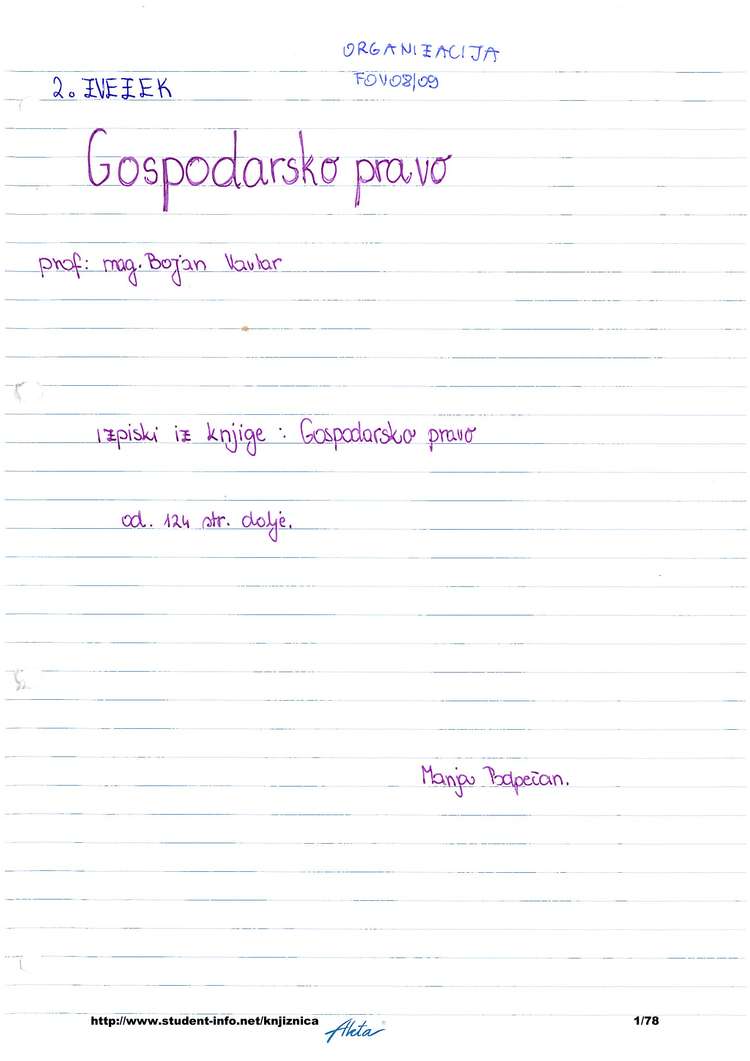 ORGANIZACIJA
FOV08/09
2. ZVEZEK
Gospodarsko pravo
prof: mag. Bojan Vavtar
izpiski iz knjige : Gospodarsko pravo
od. 124 str. dolje.
Manja Podpečan.
http://www.student-info.net/knjiznica
Akta
1/78